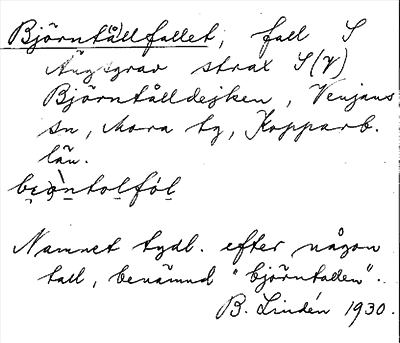 Björntållfallet, fall S
Ängsgrav strax S (V)
Björntålldejken, Venjans
sn, Mora tg, Kopparb.
län.
Namnet tydl. efter någon
tall, benämnd "björntallen".
B. Lindén 1930.